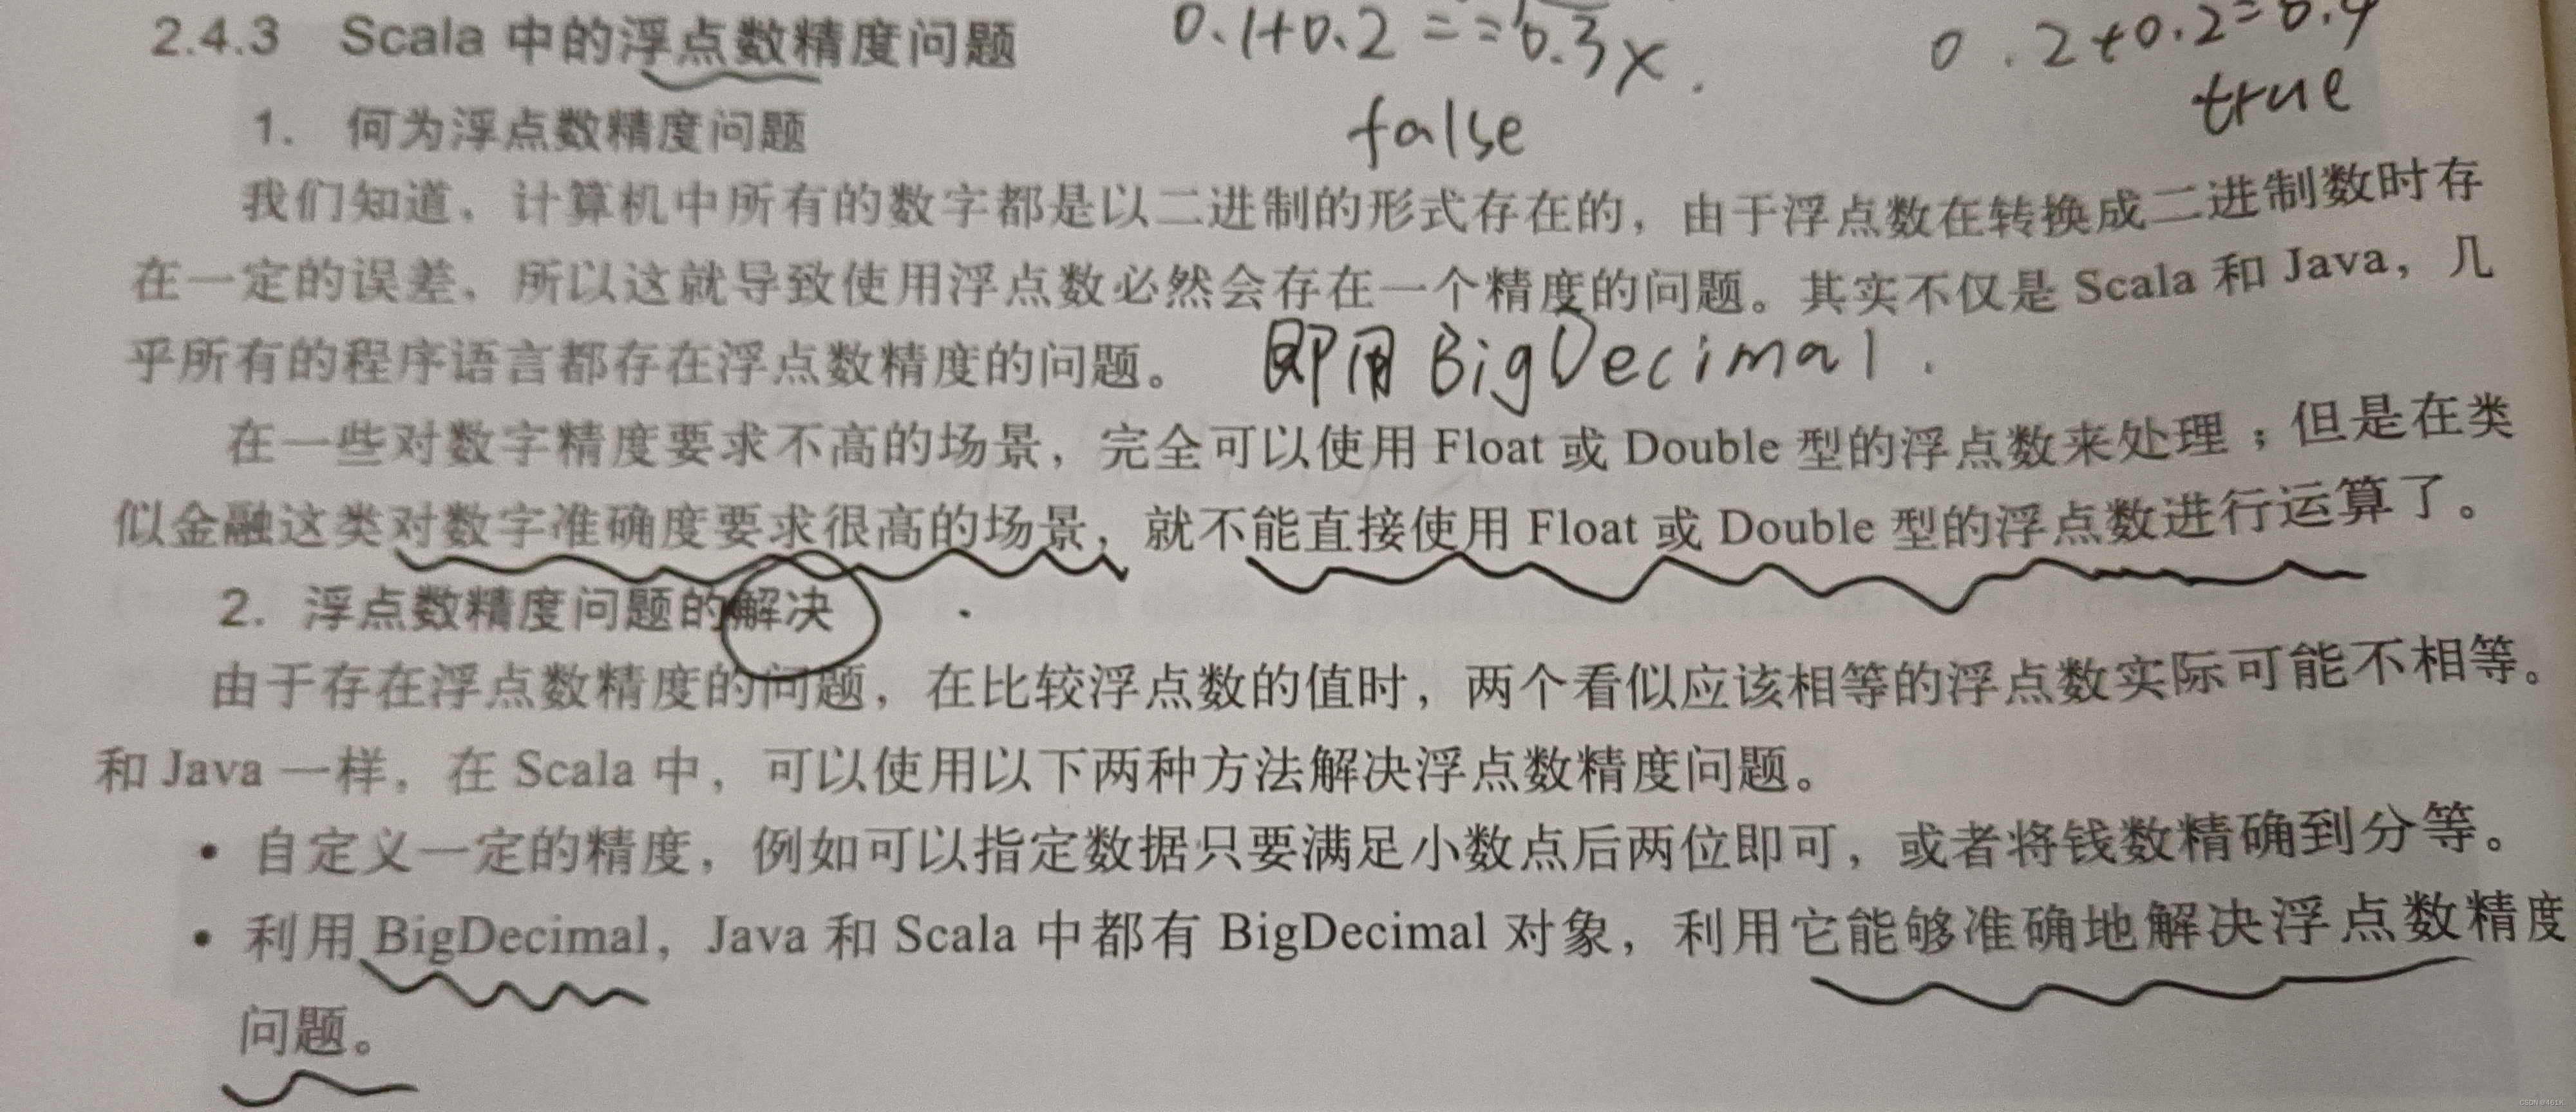 2.4.3 Scala 中的浮点数精度问题 0.1+0.2==0.3x. 0.2+0.2=0.4
false true
1. 何为浮点数精度问题
我们知道，计算机中所有的数字都是以二进制的形式存在的，由于浮点数在转换成二进制数时存
在一定的误差，所以这就导致使用浮点数必然会存在一个精度的问题。其实不仅是 Scala 和 Java，几
乎所有的程序语言都存在浮点数精度的问题。 即用 BigDecimal.
在一些对数字精度要求不高的场景，完全可以使用 Float 或 Double 型的浮点数来处理；但是在类
似金融这类对数字准确度要求很高的场景，就不能直接使用 Float 或 Double 型的浮点数进行运算了。
2. 浮点数精度问题的解决
由于存在浮点数精度的问题，在比较浮点数的值时，两个看似应该相等的浮点数实际可能不相等。
和 Java 一样，在 Scala 中，可以使用以下两种方法解决浮点数精度问题。
• 自定义一定的精度，例如可以指定数据只要满足小数点后两位即可，或者将钱数精确到分等。
• 利用 BigDecimal，Java 和 Scala 中都有 BigDecimal 对象，利用它能够准确地解决浮点数精度
问题。